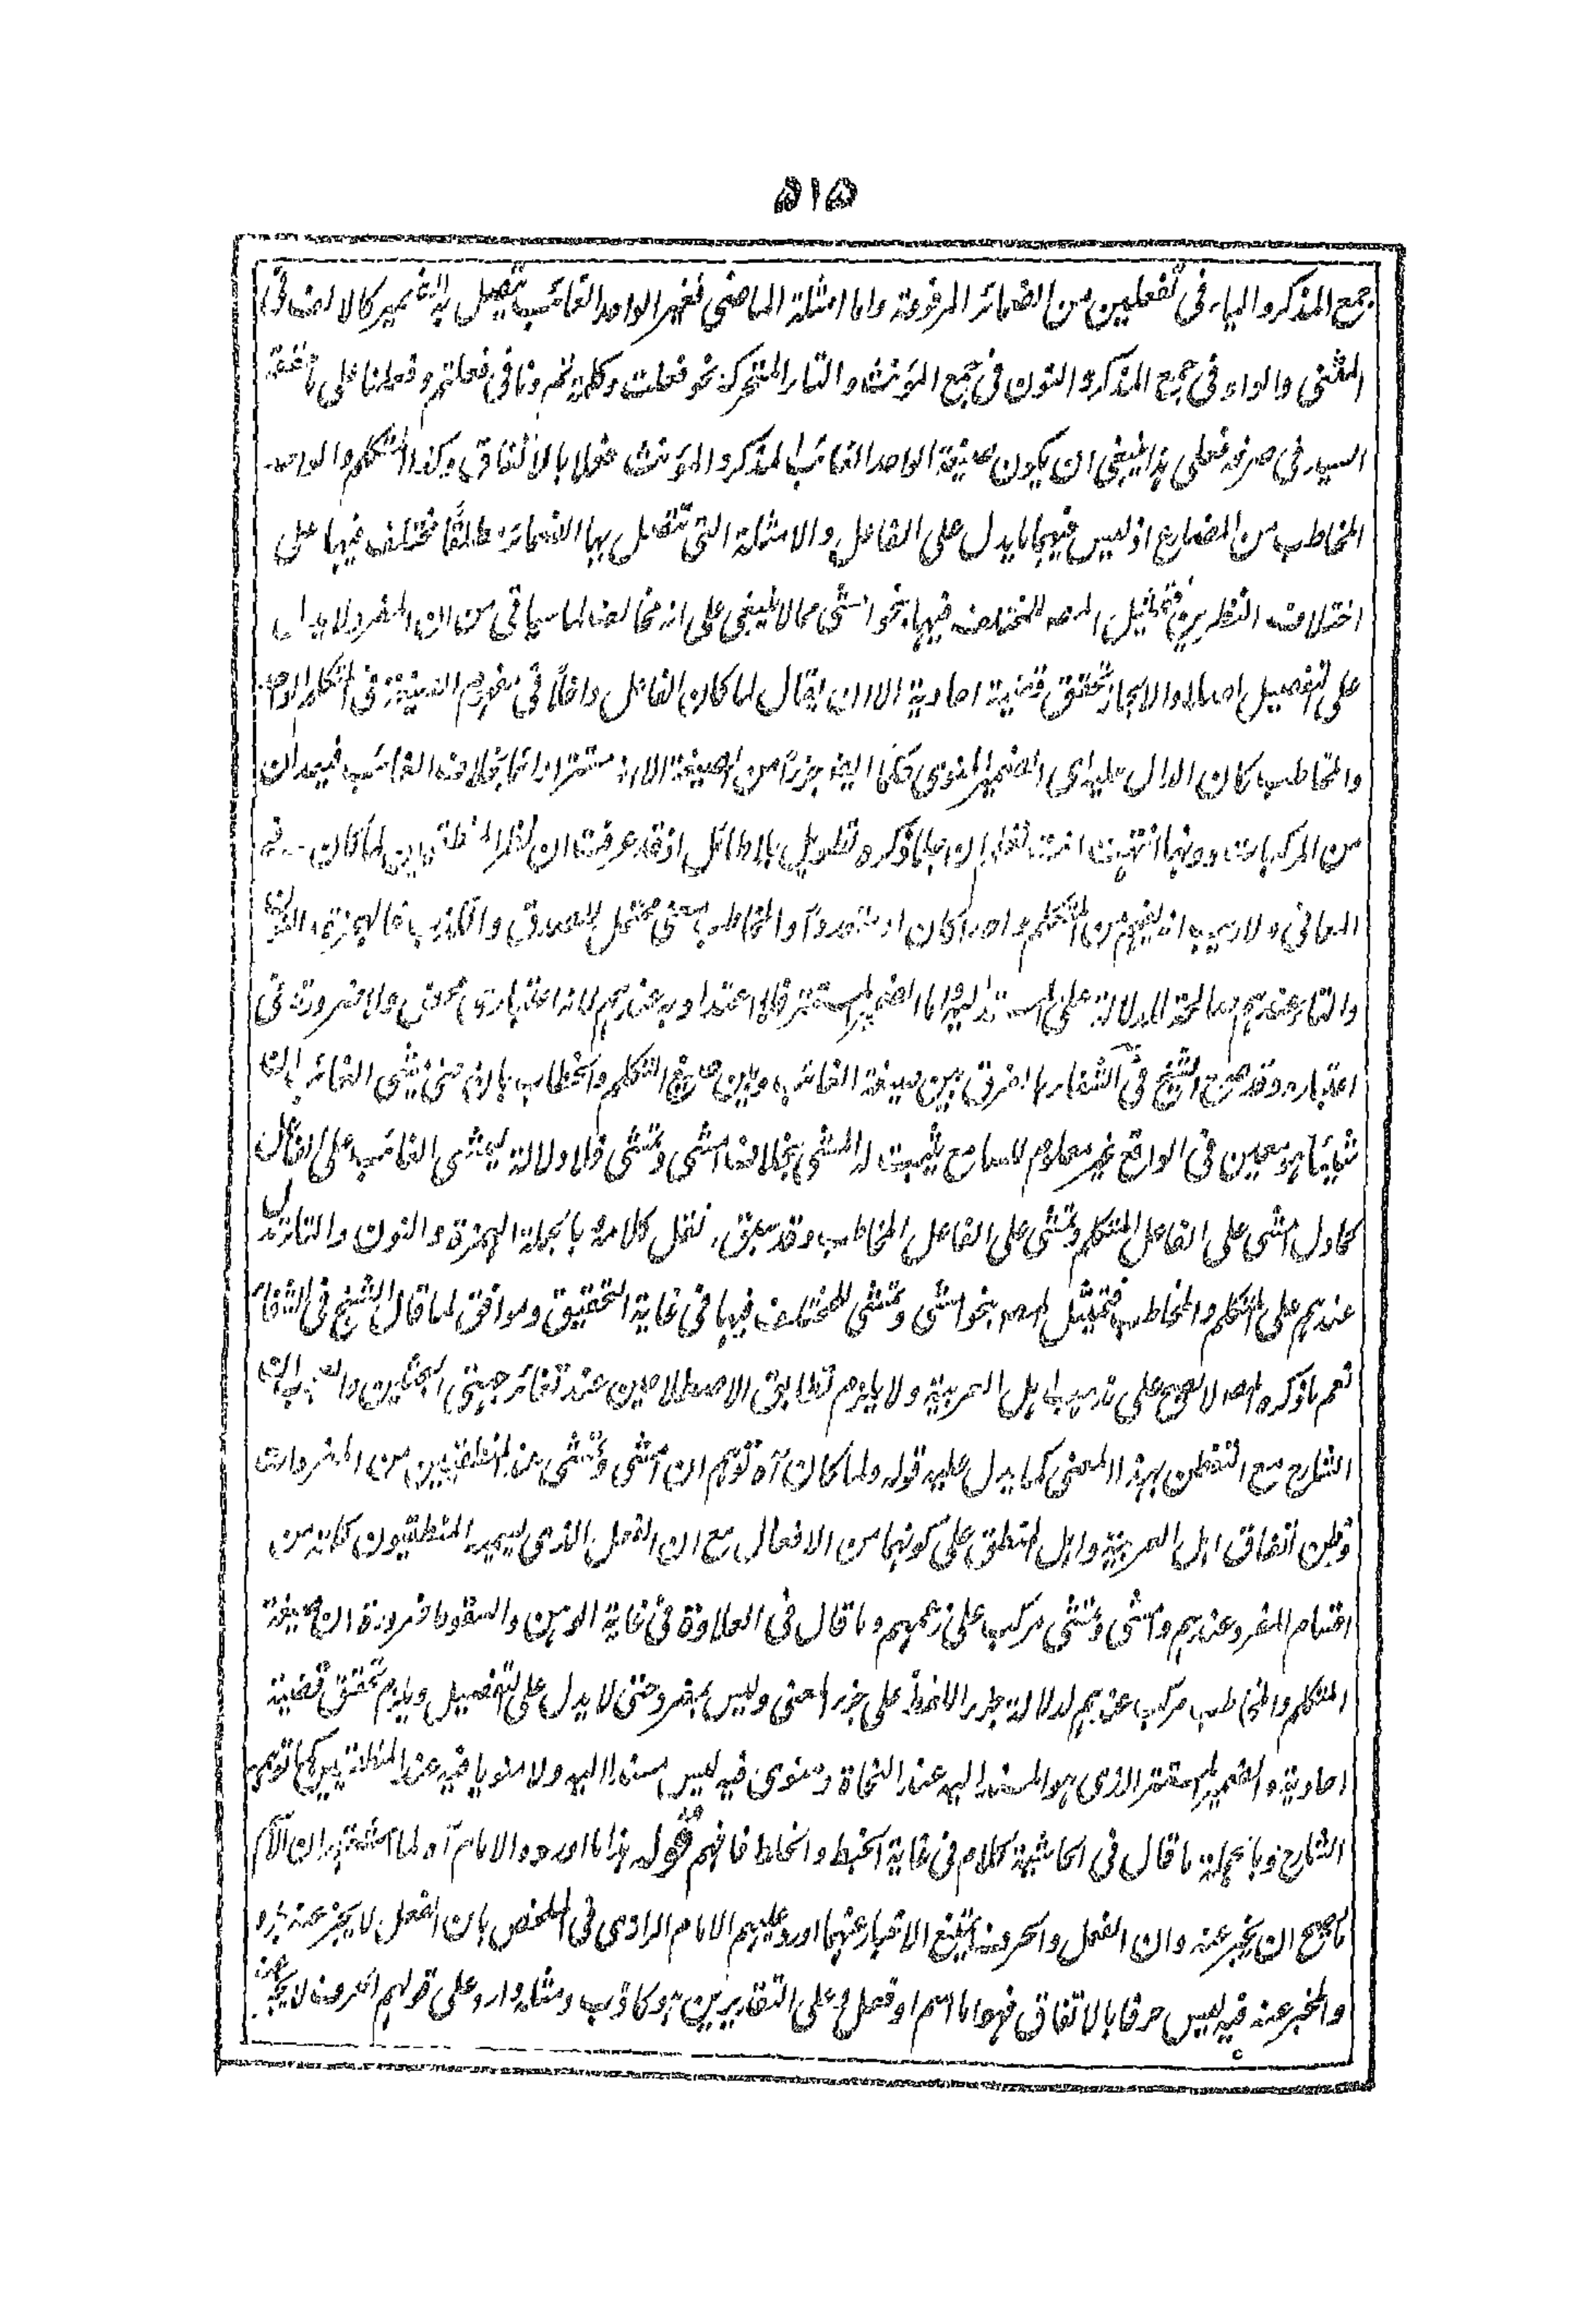 ۵۱۵
جمع المذكر والياء فى تفعلين من الضمائر المرفوعة واما امثلة الماضى فغير الواحد الغائب يتصل به الضمير كالالف فى
المثنى والواو فى جمع المذكر والنون فى جمع المؤنث والتاء المتحركة نحو فعلت وكلمة تم ونا فى فعلتم وفعلنا على ما حققه
السيد فى صرفه فعلى هذا ينبغى ان يكون صيغة الواحد الغائب المذكر والمؤنث فعلا بالاتفاق وكذا المتكلم والواحد
المخاطب من المضارع اذ ليس فيهما ما يدل على الفاعل والامثلة التى تتصل بها الضمائر مطلقا مختلف فيها على
اختلاف النظرين فتمثيل المص المختلف فيها بنحو امشى مما لا ينبغى على انه مخالف لما سياتى من ان المفرد لا يدل
على تفصيل اصلا والا لجاز تحقق قضية احادية الا ان يقال لما كان الفاعل داخلا فى مفهوم الصيغة فى المتكلم الواحد
والمخاطب كان الدال عليه اى الضمير المنوى كما ايضا جزءا من الصيغة الا انه مستتر دائما بخلاف الغائب فيعدان
من المركبات دونها انتهيت انت تعلم ان ما ذكره تطويل بلا طائل اذ قد عرفت ان نظر المنطقيين لما كان فى
المعانى ولا ريب انه يفهم من المتكلم واحدا كان او متعددا والمخاطب معنى محتمل للصدق والكذب فالهمزة والنون
والتاء عندهم صالحة للدلالة على المسند اليه واما الضمير المستتر فلا اعتداد به عندهم لانه اعتبارى محض ولا ضرورة فى
اعتباره وقد صرح الشيخ فى الشفاء بالفرق بين صيغة الغائب وبين صيغ التكلم والخطاب بان معنى يمشى الغائب ان
شيئا هو معين فى الواقع غير معلوم للسامع يثبت له المشى بخلاف امشى وتمشى فلا دلالة ليمشى الغائب على الفاعل
كما دل امشى على الفاعل المتكلم وتمشى على الفاعل المخاطب وقد سبق نقل كلامه بالجملة الهمزة والنون والتاء تدل
عندهم على المتكلم والمخاطب فتمثيل المص بنحو امشى وتمشى للمختلف فيها فى غاية التحقيق وموافق لما قال الشيخ فى الشفاء
نعم ما ذكره المص لا يصح على مذهب اهل العربية ولا يلزم تطابق الاصطلاحين عند تغائر جهتى البحثين والعجب ان
الشارح مع التفطن بهذا المعنى كما يدل عليه قوله ولما كان آه توهم ان امشى وتمشى عند المنطقيين من المفردات
وظن اتفاق اهل العربية واهل المنطق على كونهما من الافعال مع ان الفعل الذى يسميه المنطقيون كلمة من
اقسام المفرد عندهم وامشى وتمشى مركب على زعمهم وما قال فى العلاوة فى غاية الوهن والسقوط ضرورة ان صيغة
المتكلم والمخاطب مركب عندهم لدلالة جزء اللفظ على جزء المعنى وليس بمفرد حتى لا يدل على التفصيل ويلزم تحقق قضية
احادية والضمير المستتر الذى هو المسند اليه عند النحاة ومنوى فيه ليس مسندا اليه ولا منويا فيه عند المنطقيين كما توهم
الشارح وبالجملة ما قال فى الحاشية كلام فى غاية الخبط والخلط فافهم قوله هذا ما اورده الامام آه لما اشتهر ان الاسم
ما صح ان يخبر عنه وان الفعل والحرف يمتنع الاخبار عنهما اورد عليهم الامام الرازى فى الملخص بان الفعل لا يخبر عنه خبر
والمخبر عنه فيه ليس حرفا بالاتفاق فهو اما اسم او فعل وعلى التقديرين هو كاذب ومثله وارد على قولهم الحرف لا يخبر عنه